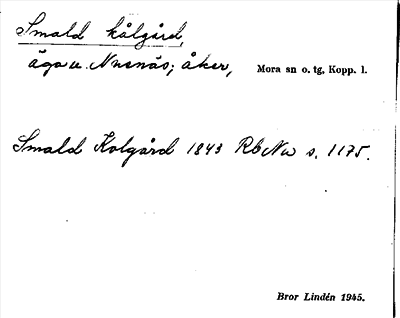 Smald kålgård,
äga u. Nusnäs; åker, Mora sn o. tg, Kopp. l.
Smald Kolgård 1843 Rb Nu s. 1175.
Bror Lindén 1945.